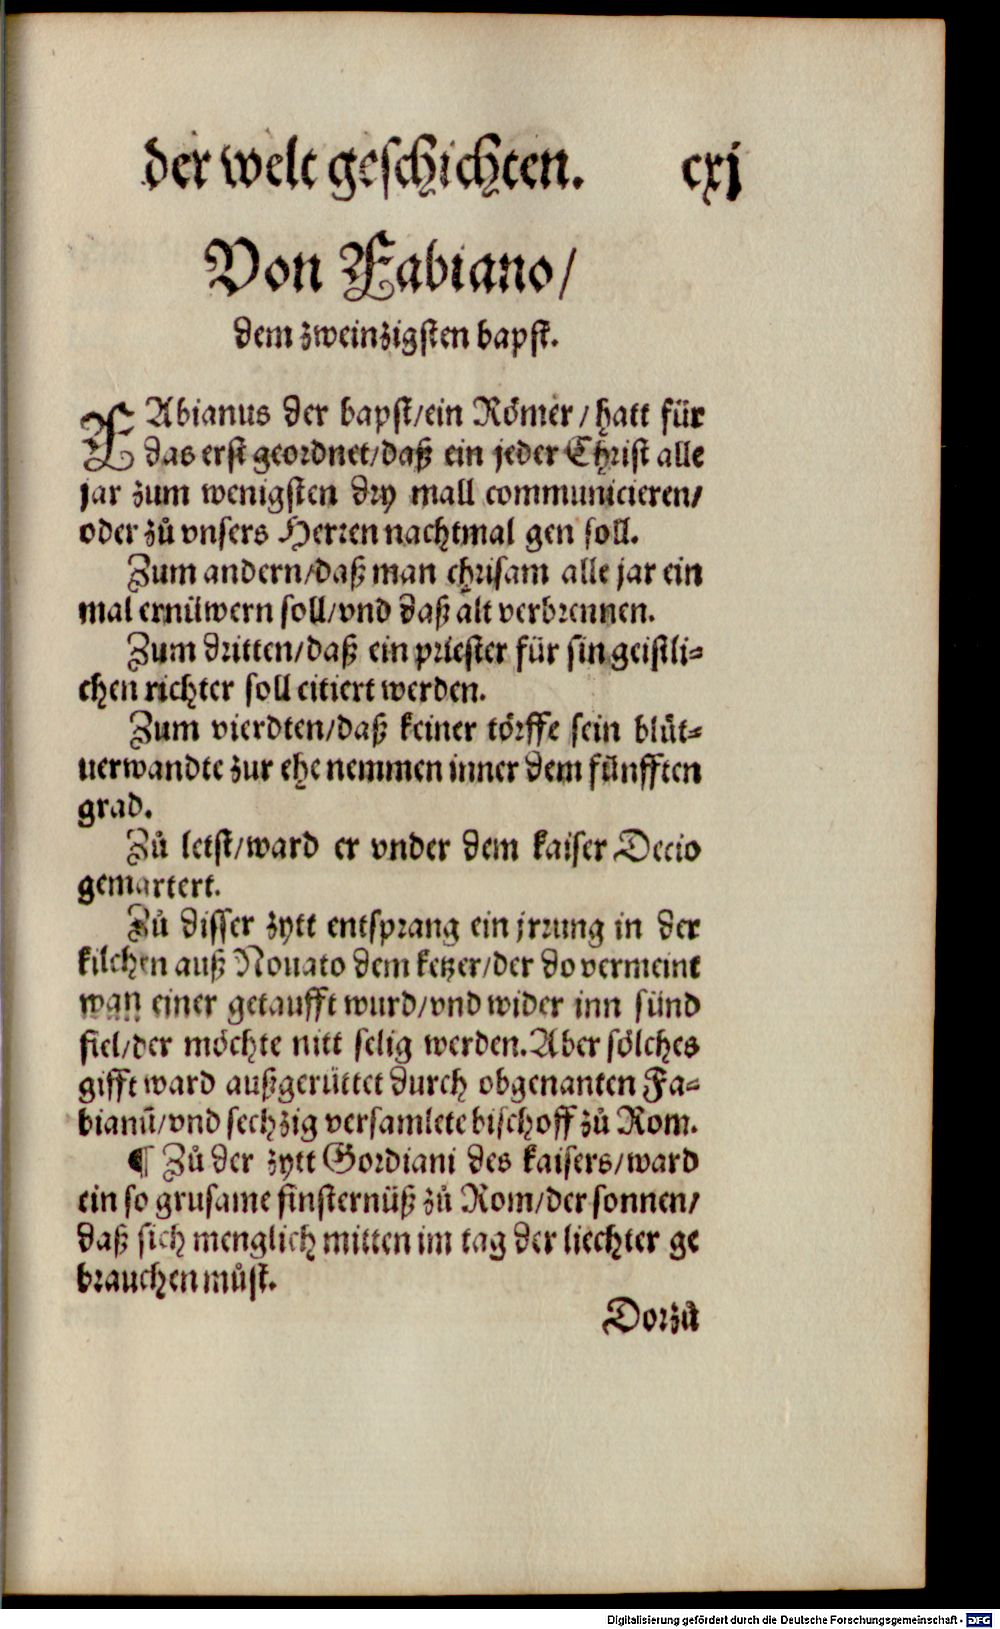 der welt geschichten. cxj
Von Fabiano/
dem zweinzigsten bapst.
FAbianus der bapst/ein Römer/hatt für
das erst geordnet/daß ein jeder Christ alle
jar zum wenigsten dry mall communicieren/
oder zů vnsers Herren nachtmal gen soll.
Zum andern/daß man chrisam alle jar ein
mal ernüwern soll/vnd daß alt verbrennen.
Zum dritten/daß ein priester für sin geistli=
chen richter soll citiert werden.
Zum vierdten/daß keiner törffe sein blůt=
uerwandte zur ehe nemmen inner dem fünfften
grad.
Zů letst/ward er vnder dem kaiser Decio
gemartert.
Zů disser zytt entsprang ein jrrung in der
kilchen auß Nouato dem ketzer/der do vermeint
wan einer getaufft wurd/vnd wider inn sünd
fiel/der möchte nitt selig werden. Aber sölches
gifft ward außgerüttet durch obgenanten Fa=
bianū/vnd sechzig versamlete bischoff zů Rom.
¶ Zů der zytt Gordiani des kaisers/ward
ein so grusame finsternüß zů Rom/der sonnen/
daß sich menglich mitten im tag der liechter ge
brauchen můst.
Dorzů
Digitalisierung gefördert durch die Deutsche Forschungsgemeinschaft - DFG